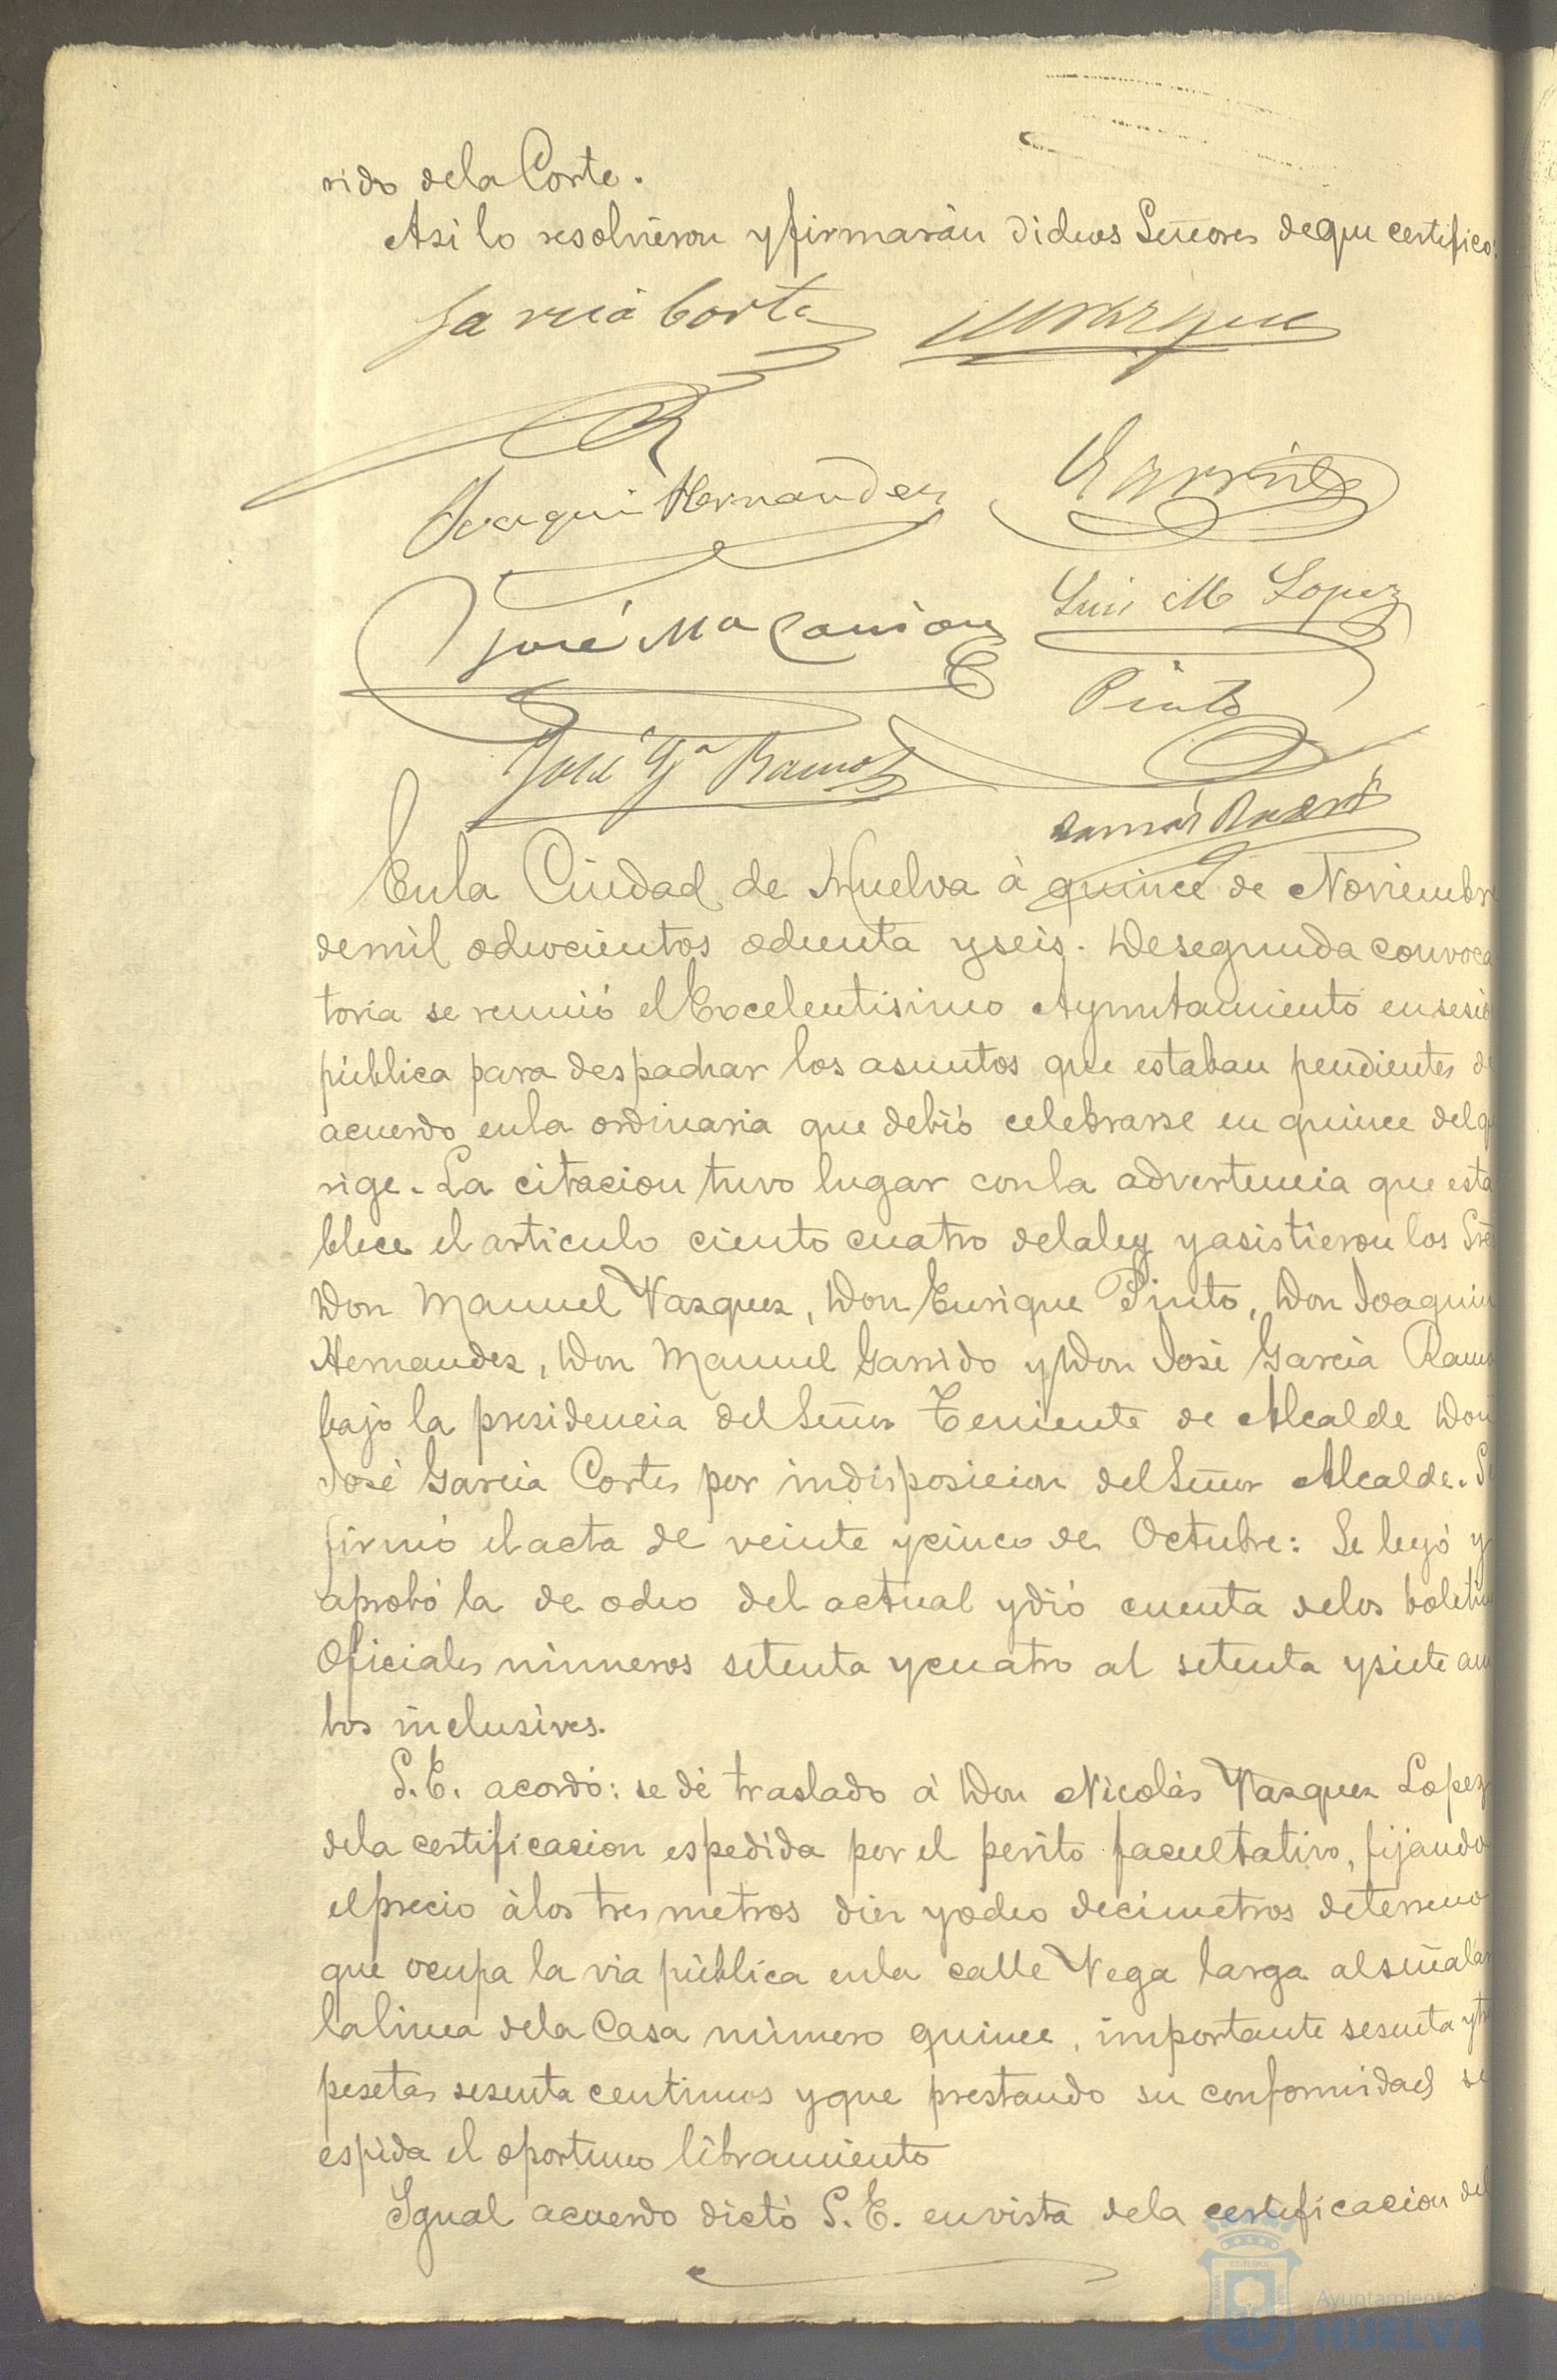 rido de la Corte.
Asi lo resolvieron y firmarán dichos Señores de que certifico.
Garcia Cortes
Vazquez
Joaquin Hernandez
Garrido
José Mª
Luis M Lopez
Pinto
José Gª Ramos
En la Ciudad de Huelva á quince de Noviembr
de mil ochocientos ochenta y seis. De segunda convoca
toria se reunió el Excelentisimo Ayuntamiento en sesió
pública para despachar los asuntos que estaban pendientes d
acuerdo en la ordinaria que debió celebrarse en quince del q
rige. La citacion tuvo lugar con la advertencia que esta
blece el articulo ciento cuatro de la ley y asistieron los Sre
Don Manuel Vazquez, Don Enrique Pinto, Don Joaquin
Hernandez, Don Manuel Garrido y Don José Garcia Ramo
bajo la presidencia del Señor Teniente de Alcalde Don
José Garcia Cortes por indisposicion del Señor Alcalde. S
firmó el acta de veinte y cinco de Octubre: Se leyó y
aprobó la de ocho del actual y dió cuenta de los boletin
Oficiales números setenta y cuatro al setenta y siete am
bos inclusives.
S.E. acordó: se dé traslado á Don Nicolás Vazquez Lopez
de la certificacion espedida por el perito facultativo, fijando
el precio á los tres metros diez y ocho decimetros de terreno
que ocupa la via pública en la calle Vega larga al señalar
la linea de la Casa número quince, importante sesenta y tr
pesetas sesenta centimos y que prestando su conformidad se
espida el oportuno libramiento
Igual acuerdo dictó S.E. en vista de la certificacion del
Ayuntamiento
HUELVA